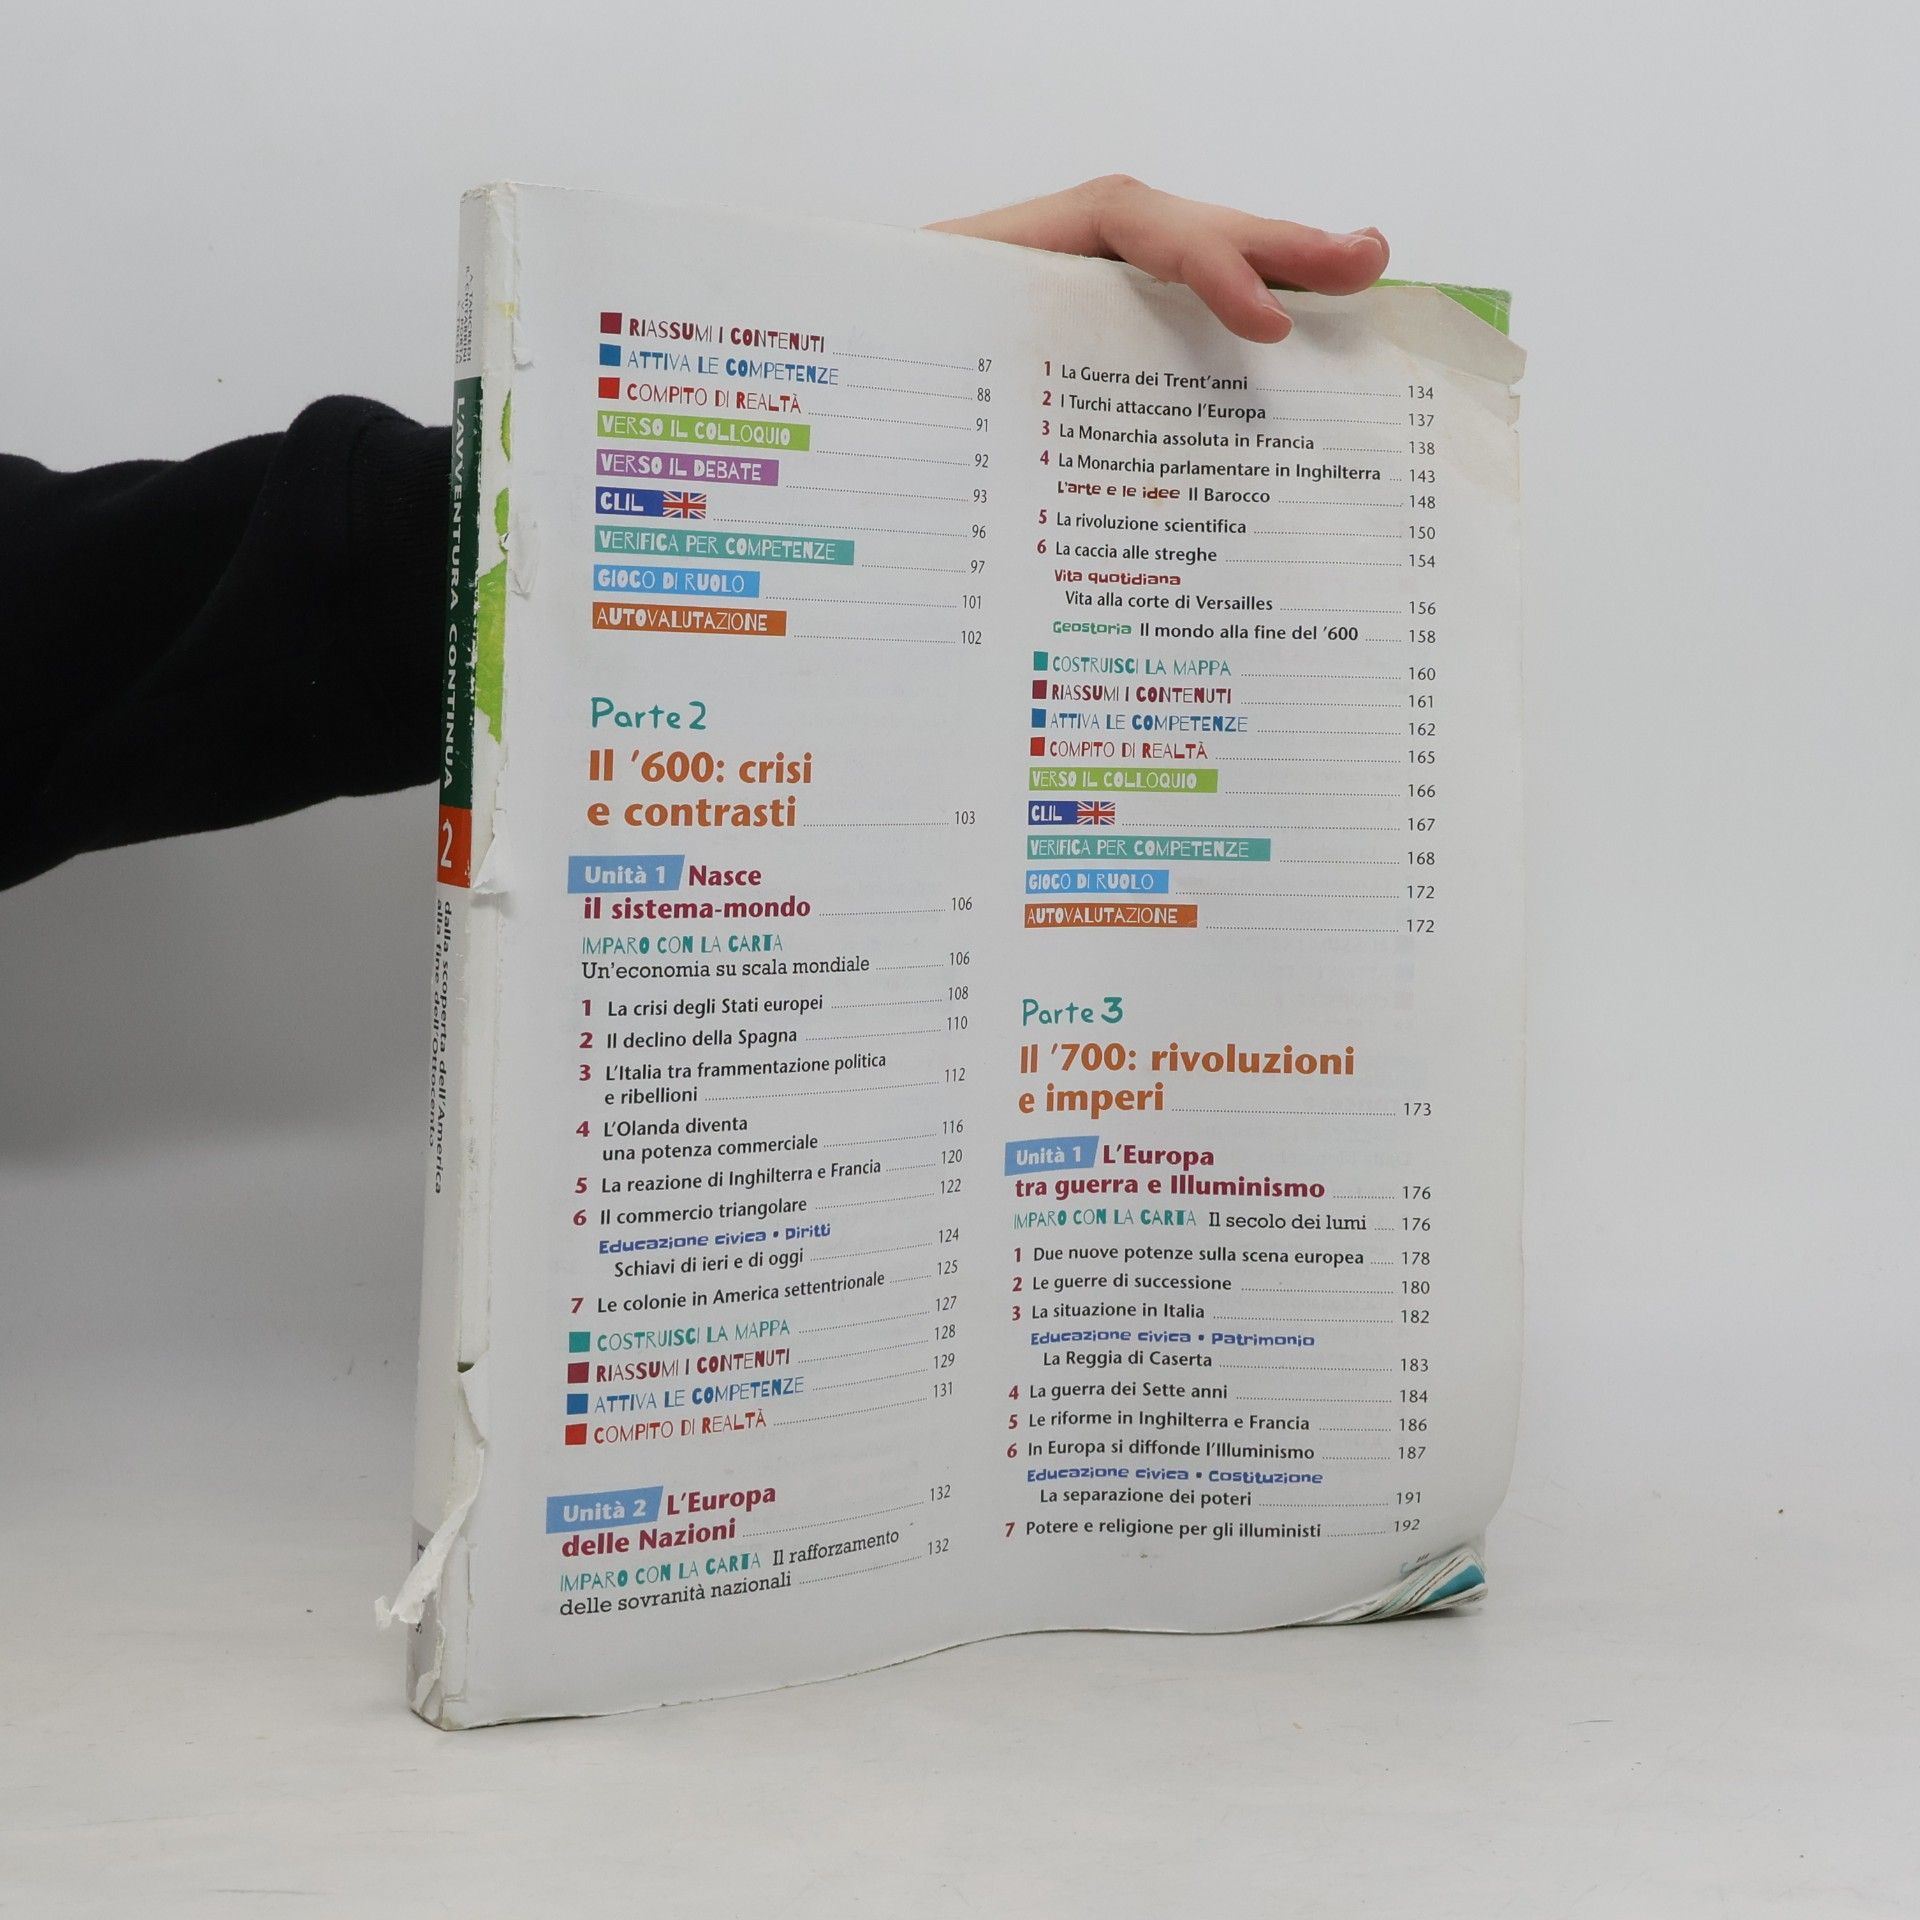 L'AVVENTURA CONTINUA
2
dalla scoperta dell'America
alla fine dell'Ottocento
RIASSUMI I CONTENUTI 87
ATTIVA LE COMPETENZE 88
COMPITO DI REALTÀ 91
VERSO IL COLLOQUIO 92
VERSO IL DEBATE 93
CLIL 96
VERIFICA PER COMPETENZE 97
GIOCO DI RUOLO 101
AUTOVALUTAZIONE 102
Parte 2
Il '600: crisi
e contrasti 103
Unità 1 Nasce
il sistema-mondo 106
IMPARO CON LA CARTA
Un'economia su scala mondiale 106
1 La crisi degli Stati europei 108
2 Il declino della Spagna 110
3 L'Italia tra frammentazione politica
e ribellioni 112
4 L'Olanda diventa
una potenza commerciale 116
5 La reazione di Inghilterra e Francia 120
6 Il commercio triangolare 122
Educazione civica • Diritti
Schiavi di ieri e di oggi 124
7 Le colonie in America settentrionale 125
COSTRUISCI LA MAPPA 127
RIASSUMI I CONTENUTI 128
ATTIVA LE COMPETENZE 129
COMPITO DI REALTÀ 131
Unità 2 L'Europa
delle Nazioni 132
IMPARO CON LA CARTA Il rafforzamento
delle sovranità nazionali 132
1 La Guerra dei Trent'anni 134
2 I Turchi attaccano l'Europa 137
3 La Monarchia assoluta in Francia 138
4 La Monarchia parlamentare in Inghilterra 143
L'arte e le idee Il Barocco 148
5 La rivoluzione scientifica 150
6 La caccia alle streghe 154
Vita quotidiana
Vita alla corte di Versailles 156
Geostoria Il mondo alla fine del '600 158
COSTRUISCI LA MAPPA 160
RIASSUMI I CONTENUTI 161
ATTIVA LE COMPETENZE 162
COMPITO DI REALTÀ 165
VERSO IL COLLOQUIO 166
CLIL 167
VERIFICA PER COMPETENZE 168
GIOCO DI RUOLO 172
AUTOVALUTAZIONE 172
Parte 3
Il '700: rivoluzioni
e imperi 173
Unità 1 L'Europa
tra guerra e Illuminismo 176
IMPARO CON LA CARTA Il secolo dei lumi 176
1 Due nuove potenze sulla scena europea 178
2 Le guerre di successione 180
3 La situazione in Italia 182
Educazione civica • Patrimonio
La Reggia di Caserta 183
4 La guerra dei Sette anni 184
5 Le riforme in Inghilterra e Francia 186
6 In Europa si diffonde l'Illuminismo 187
Educazione civica • Costituzione
La separazione dei poteri 191
7 Potere e religione per gli illuministi 192